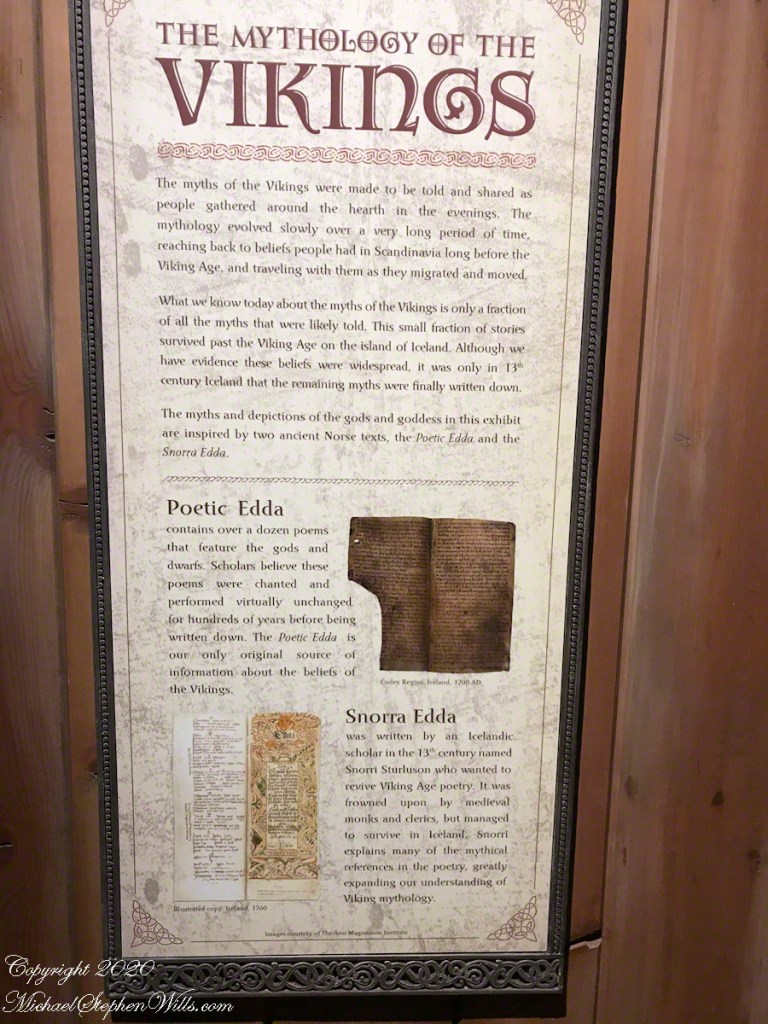 THE MYTHOLOGY OF THE
VIKINGS
The myths of the Vikings were made to be told and shared as
people gathered around the hearth in the evenings. The
mythology evolved slowly over a very long period of time,
reaching back to beliefs people had in Scandinavia long before the
Viking Age, and traveling with them as they migrated and moved.
What we know today about the myths of the Vikings is only a fraction
of all the myths that were likely told. This small fraction of stories
survived past the Viking Age on the island of Iceland. Although we
have evidence these beliefs were widespread, it was only in 13th
century Iceland that the remaining myths were finally written down.
The myths and depictions of the gods and goddess in this exhibit
are inspired by two ancient Norse texts, the Poetic Edda and the
Snorra Edda.
Poetic Edda
contains over a dozen poems
that feature the gods and
dwarfs. Scholars believe these
poems were chanted and
performed virtually unchanged
for hundreds of years before being
written down. The Poetic Edda is
our only original source of
information about the beliefs of
the Vikings.
Codex Regius, Iceland, 1200 AD.
Snorra Edda
was written by an Icelandic
scholar in the 13th century named
Snorri Sturluson who wanted to
revive Viking Age poetry. It was
frowned upon by medieval
monks and clerics, but managed
to survive in Iceland. Snorri
explains many of the mythical
references in the poetry, greatly
expanding our understanding of
Viking mythology.
Illustrated copy, Iceland, 1760
Images courtesy of The Arni Magnusson Institute
Copyright 2020
MichaelStephenWills.com